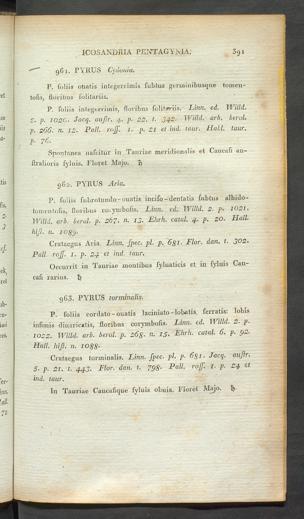 ICOSANDRIA PENTAGYNIA. 391
961. PYRUS Cydonia.
P. foliis ouatis integerrimis subtus germinibusque tomen-
tosis, floribus solitariis.
P. foliis integerrimis, floribus solitariis. Linn. ed. Willd.
2. p. 1020. Jacq. austr. 4. p. 22. t. 342. Willd. arb. berol.
p. 266. n. 12. Pall. ross. 1. p. 21 et ind. taur. Habl. taur.
p. 76.
Spontanea nascitur in Tauriae meridionalis et Caucasi au-
stralioris syluis. Floret Majo. ♄
962. PYRUS Aria.
P. foliis subrotundo-ouatis inciso-dentatis subtus albido-
tomentosis, floribus corymbosis. Linn. ed. Willd. 2. p. 1021.
Willd. arb. berol. p. 267. n. 13. Ehrh. catal. 4. p. 20. Hall.
hist. n. 1089.
Crataegus Aria. Linn. spec. pl. p. 681. Flor. dan. t. 302.
Pall ross. 1. p. 24 et ind. taur.
Occurrit in Tauriae montibus syluaticis et in syluis Cau-
casi rarius. ♄
963. PYRUS torminalis.
P. foliis cordato-ouatis laciniato-lobatis, serratis: lobis
infimis diuaricatis, floribus corymbosis. Linn. ed. Willd. 2. p.
1022. Willd. arb. berol. p. 268. n. 15. Ehrh. catal. 6. p. 92.
Hall. hist. n. 1088.
Crataegus torminalis. Linn. spec. pl. p. 681. Jacq. austr.
5. p. 21. t. 443. Flor. dan. t. 798. Pall. ross. 1. p. 24 et
ind. taur.
In Tauriae Caucasique syluis obuia. Floret Majo. ♄